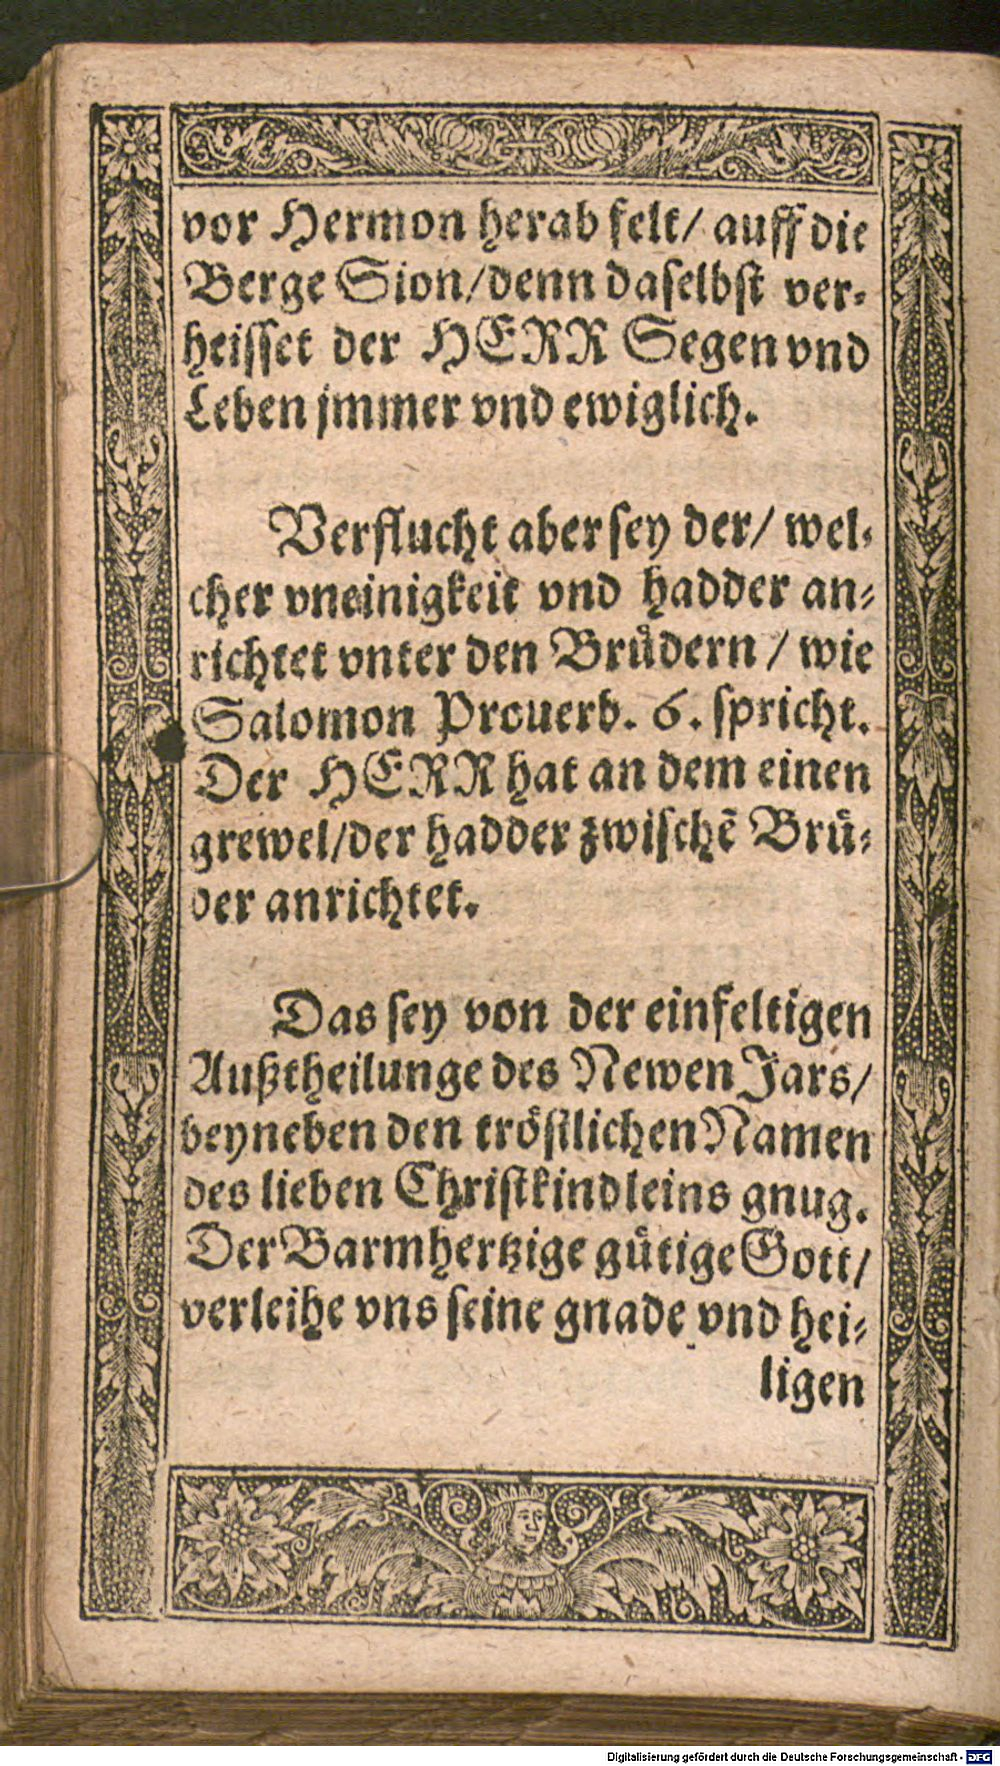 vor Hermon herab felt/ auff die
Berge Sion/denn daselbst ver-
heisset der HERR Segen vnd
Leben jmmer vnd ewiglich.
Verflucht aber sey der/ wel-
cher vneinigkeit vnd hadder an-
richtet vnter den Bruͤdern / wie
Salomon Prouerb. 6. spricht.
Der HERR hat an dem einen
grewel/der hadder zwischẽ Bruͤ-
der anrichtet.
Das sey von der einfeltigen
Außtheilunge des Newen Jars/
beyneben den troͤstlichen Namen
des lieben Christkindleins gnug.
Der Barmhertzige guͤtige Gott/
verleihe vns seine gnade vnd hei-
ligen
Digitalisierung gefördert durch die Deutsche Forschungsgemeinschaft - DFG